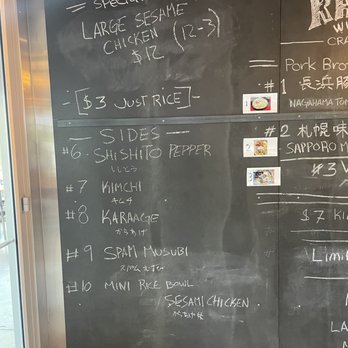 Special
LARGE SESAME
CHICKEN (12-3)
$12
[$3 JUST RICE]
— SIDES —
#6 - SHISHITO PEPPER
ししとう
#7 KIMCHI
キムチ
#8 KARAAGE
からあげ
#9 SPAM MUSUBI
スパムむすび
#10 MINI RICE BOWL
SESAME CHICKEN
CRA
Pork Bro
#1 長浜
NAGAHAMA TON
#2 札幌味
SAPPORO M
#3 V
$7 KI
Limi